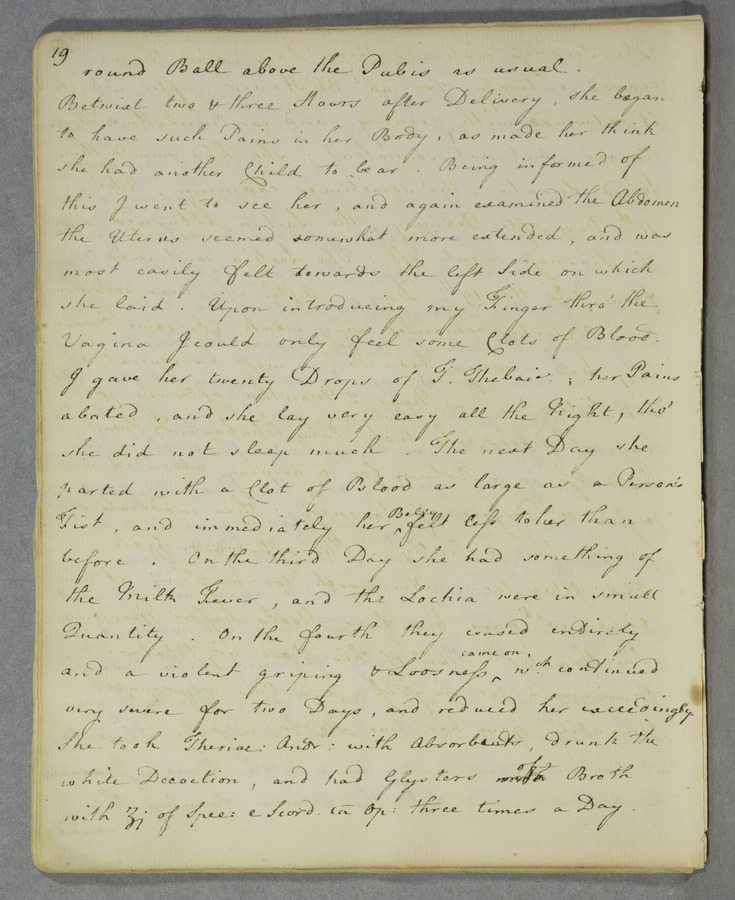 19
round Ball above the Pubis as usual.
Betwixt two & three Hours after Delivery, she began
to have such Pains in her Body, as made her think
she had another Child to bear. Being informed of
this I went to see her, and again examined the Abdomen
the Uterus seemed somewhat more extended, and was
most easily felt towards the left Side on which
she laid. Upon introducing my Finger thro' the
Vagina I could only feel some Clots of Blood.
I gave her twenty Drops of T. Thebaic.; her Pains
abated, and she lay very easy all the Night, tho'
she did not sleep much. The next Day she
parted with a Clot of Blood as large as a Person's
Fist, and immediately her Belly felt less to her than
before. On the third Day she had something of
the Milk Fever, and the Lochia were in small
Quantity. On the fourth they ceased entirely
and a violent griping & Loosness came on, wch. continued
very severe for two Days, and reduced her exceedingly.
She took Theriac: Andr: with Absorbents, drunk the
white Decoction, and had Glysters of Broth
with ʒj of Spec: e Scord. cū Op: three times a Day.